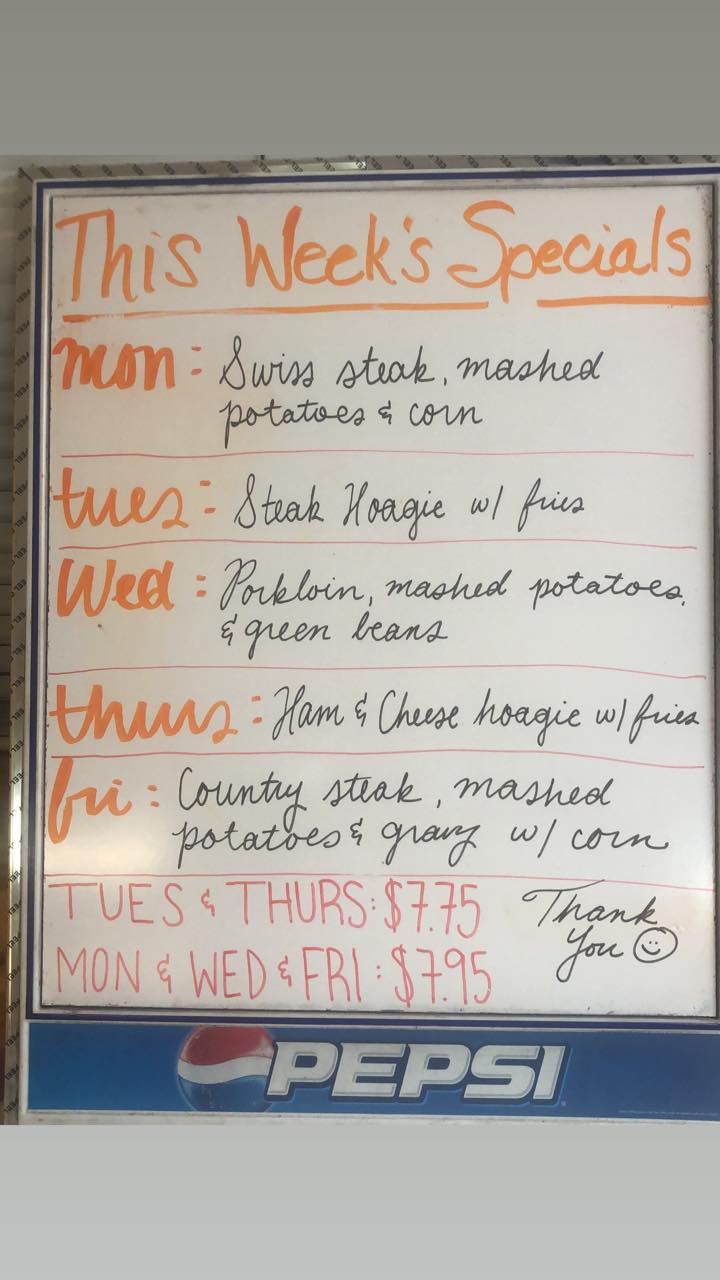 This Week's Specials
mon: Swiss steak, mashed
potatoes & corn
tues: Steak Hoagie w/ fries
Wed: Porkloin, mashed potatoes,
& green beans
thurs: Ham & Cheese hoagie w/ fries
fri: Country steak, mashed
potatoes & gravy w/ corn
TUES & THURS: $7.75
MON & WED & FRI: $7.95
Thank
You
PEPSI